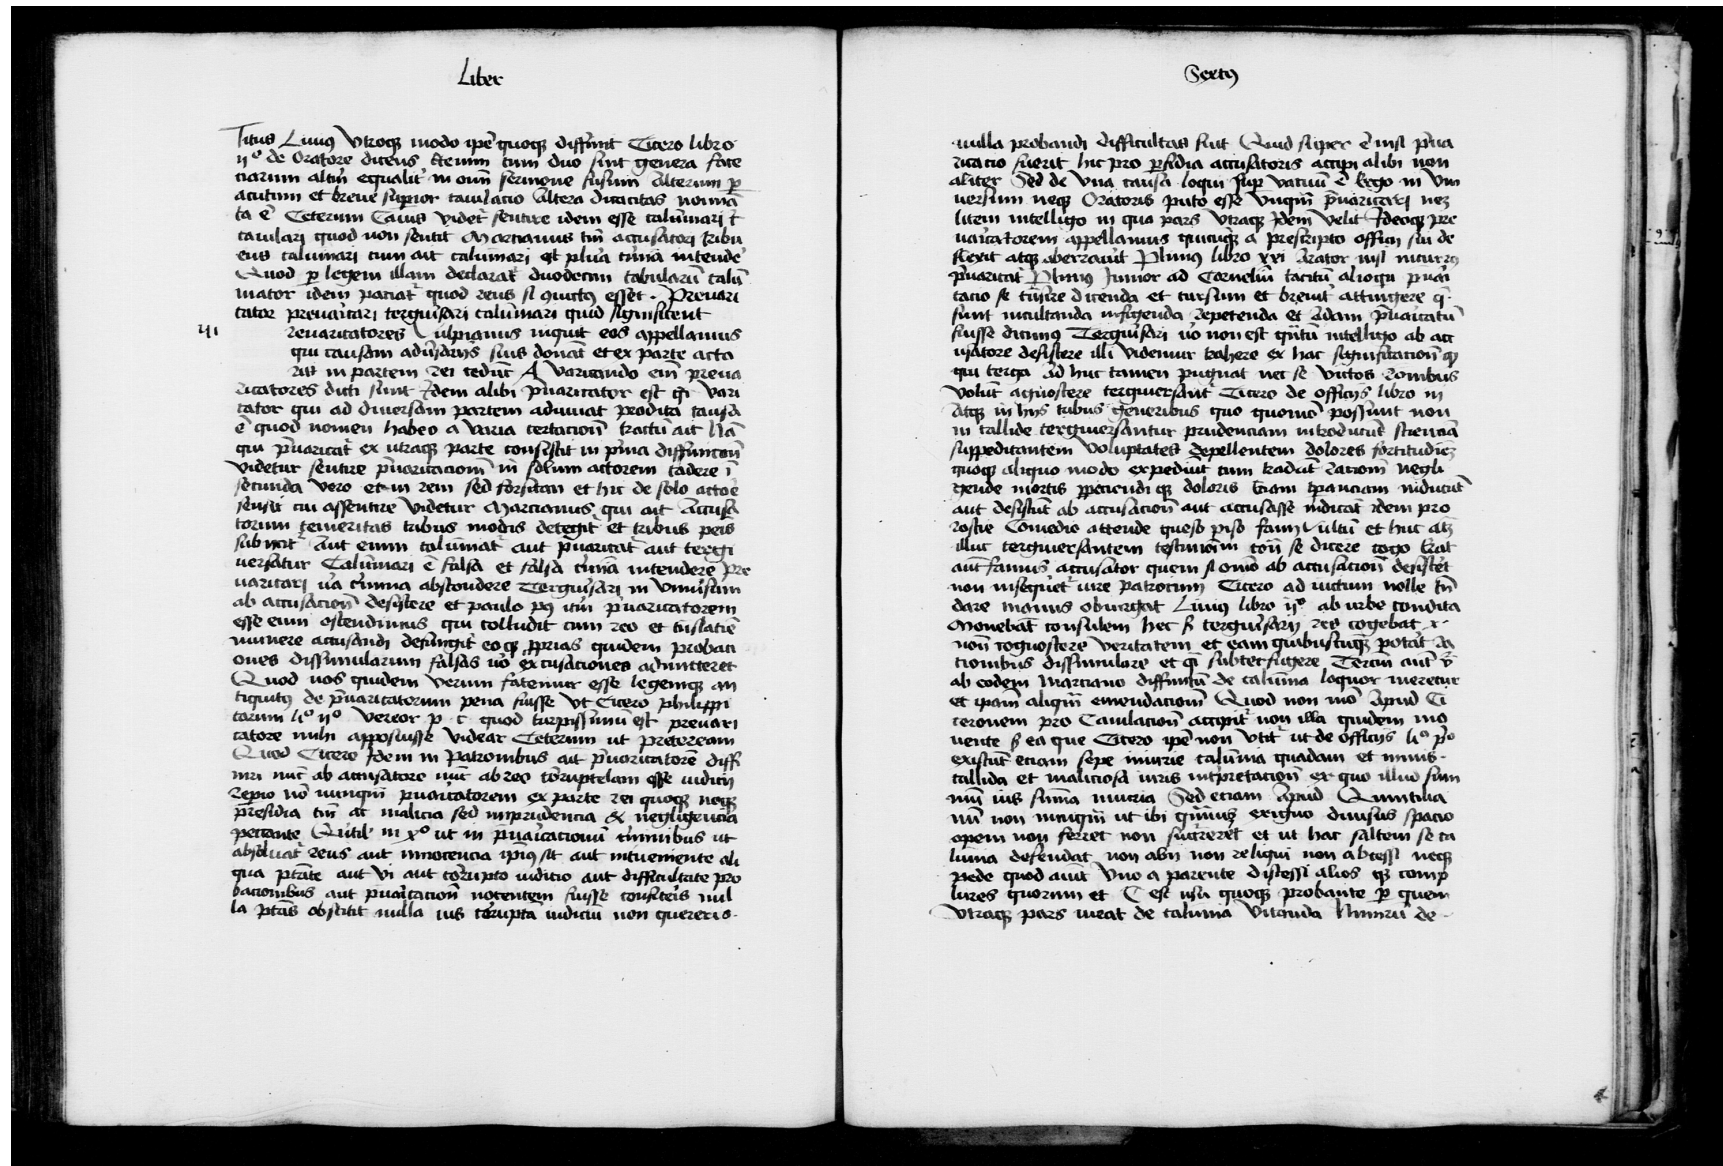 Liber
Titus Liuiꝰ Vtroqꝫ modo ip̄e quoqꝫ diffinit Cicero libro
ijº de Oratore dicens Etenim cum duo sint genera face
ciarum altm̄ equalit̄ in om̄i sermone fusum Alterum ꝑ
acutum et breue superior cauilacio Altera dicacitas noīa
ta ē Ceterum Caius videt̄ sentire idem esse calūmari ⁊
cauilari quod non sentit Marcianus tm̄ accusatori tribu
ens calūmari cum ait calūmari est falsa c̄mina intende᷑
Quod ꝑ legem illam declarat̄ duodecim tabularū calū
niator idem paciat̄ quod reus si ꝯuictꝰ esset · Preuari
cator preuaricari terguisari calūmari quid significent
iij
reuaricatores Vulpianus inquit eos appellamus
qui causam adūsarijs suis donāt et ex parte acto
ris in partem rei cedūt A varicando eīn preua
ricatores dicti sunt Idem alibi p̄uaricator est q̄i vari
cator qui ad diuersam partem adiuuat prodita causa
ē quod nomen habeo a varia certacione tractū ait Nā
qui p̄uaricat̄ ex utraqꝫ parte consistit in p̄ma diffinicōn̄
videtur sentire p̄uaricacionē in solum actorem cadere ī
secunda vero et in rem sed forsitan et hic de solo acto᷑e
sensit cui assentire videtur Marcianus qui ait Accusa
torum temeritas tribus modis detegit̄ et tribus penis
subicit̄ Aut enim calūmat̄ aut p̄uaricat̄ aut tergi
uersatur Calūmari ē falsa et falsa c̄mina intendere Pre
uaricari u᷑a c̄mina abscondere Terguisari in vniuersum
ab accusacionē desistere et paulo pꝰ itm̄ p̄uaricatorem
esse eum ostendimus qui colludit cum reo et translaticie
munere accusandi defungit̄ eo qꝫ ꝓprias quidem probaci
ones dissimularum falsas uō excusaciones admitteret
Quod nos quidem verum fatemur esse legemqꝫ an
tiquitꝰ de p̄uaricatorum pena fuisse Vt Cicero philippi
carum liº ijº Vereor p · c · quod turpissimū est preuari
catore mihi apposuisse videar Ceterum ut preteream
Quod Cicero Idem in patronibus ait p̄uaricatorē diff
niri nūc ab accusatore nūc ab reo corruptelam esse iudicij
Repio nō nunqm̄ p̄uaricatorem ex parte rei quoqꝫ neqꝫ
perfidia tm̄ at malicia sed imprudencia & negligencia
peccante Quītil' in xº ut in p̄uaricacionū c̄minibus ut
absoluat̄ reus aut innocencia ip̄ius sit aut interueniente ali
qua ptāte aut vi aut corrupto iudicio aut difficultate pro
bacionibus aut p̄uaricacionē nocentem fuisse confiteris nul
la ptās obstitit nulla uis corrupta iudiciū non quereris ·
Sextꝰ
nulla probandi difficultas fuit Quid super ē nisi p̄ua
ricacio fuerit hic pro ꝑfidia accusatoris accipi alibi non
aliter Sed de vna causa loqui sup̄ vacuū ē Ergo in vni
uersum neqꝫ Oratoris puto esse vnqm̄ p̄uaricari neqꝫ
litem intelligo in qua pars vtraqꝫ Idem velit Ideoqꝫ pre
uaricatorem appellamus quicūqꝫ a prescripto officij sui de
flexit atqꝫ aberrauit Plinius libro xxi Arator nisi incuruꝰ
p̄uaricat̄ Plinius Iunior ad Corneliū tacitū alioqui p̄uari
cacio se transire dicenda et cursim et breuit̄ attingere q̄
sunt inculcanda infigenda repetenda et q̄dam p̄uaricatū
fuisse dicimus Terguisari uō non est qn̄tū intelligo ab acc
usatore desistere illi videmur trahere ex hac significacionē qꝫ
qui terga Ad huc tamen pugnat nec se victos
volūt agnoscere terguiersant̄ Cicero de officijs libro iij
Atqꝫ in hijs tribus generibus quo quomō possunt non
in callide terguiersantur prudenciam introducūt scienciā
suppeditantem voluptates depellentem dolores fortitudinē
quoqꝫ aliquo modo expediūt cum tradūt racionē negli
gende mortis ꝑpeciendi qꝫ doloris Eciam tꝑanciam inducūt
aut desistūt ab accusacionē aut accusasse indicāt idem pro
roscio Comedio attende queso piso fanni vultū et huc atqꝫ
illuc terguiersantem testimoniū contra se dicere cogo Erat
autē fannius accusator quem si omō ab accusacionē desistet̄
non insequet̄ iure patrocium Cicero ad victum nolle tn̄
dare manus obiurgat Liuius libro ijº ab urbe condita
Monebāt consulem hec ⁊ terguisarij res cogebat · x ·
non cognoscere veritatem et eam quibuscūqꝫ potāt ra
cionibus dissimulare et q̄i subterfugere Terciū autē ū
ab eodem Marciano diffinitū de calūma loquor meretur
et ip̄am aliqm̄ emendacionē Quod non mō Apud Ci
ceronem pro Cauilacionē accipit̄ non illa quidem mo
uente ⁊ ea que Cicero ip̄e non vtit̄ ut de officijs liº pº
existūt eciam sepe iniurie calūma quadam et nimis ·
callida et maliciosa iuris int̄pretacionē ex quo illud sum
mū ius sūma iniuria Sed eciam Apud Quintilia
nū non nunqm̄ ut ibi qm̄uis exiguo diuisus spacio
opem non ferret non succurreret et ut hac saltem se ca
lūma defendat non abij non reliqui non abcessi neqꝫ
pede quod aiūt vno a parente discessi alios qꝫ comp
lures quorum et C est usu quoqꝫ probante ꝑ quem
vtraqꝫ pars iurat de calūma vitanda Nimirū de ·